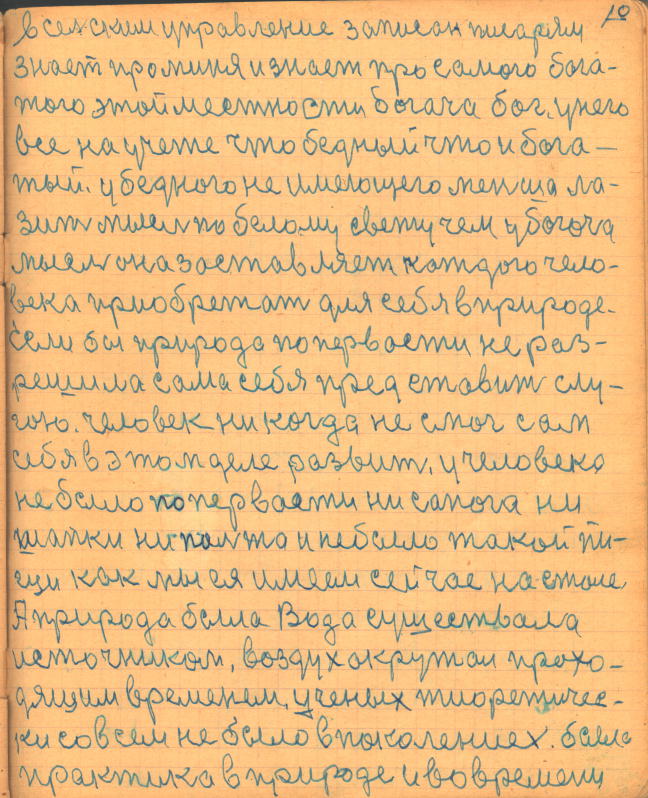 10
всехским управление записан писарям
знает проминя и знает про самого бога-
того этой местности богача бог. у него
все на учете что бедный что и бога-
тый. у бедного не имеющего менша ла-
зит мысл по белому свету чем у богоча
мысл она заставляет каждого чело-
века приобретат для себя в природе.
если бы природа по первости не раз-
решила сама себя представит слу-
гою. человек никогда не смог сам
себя в этом деле развит, у человека
не было по первости ни сапога ни
шапки ни палта и небыло такой пи-
щи как мы ея имеем сейчас на столе.
А природа была Вода существала
источником, воздух окружал прохо-
дящим временем, ученых тиоретичес-
ки совсем не было в поколениех. была
практика в природе и во времени